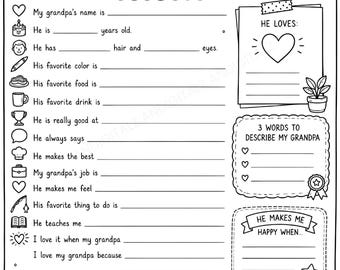 My grandpa's name is
He is years old.
He has hair and eyes.
His favorite color is
His favorite food is
His favorite drink is
He is really good at
He always says
He makes the best
My grandpa's job is
He makes me feel
His favorite thing to do is
He teaches me
I love it when my grandpa
I love my grandpa because
HE LOVES:
3 WORDS TO
DESCRIBE MY GRANDPA
HE MAKES ME
HAPPY WHEN...